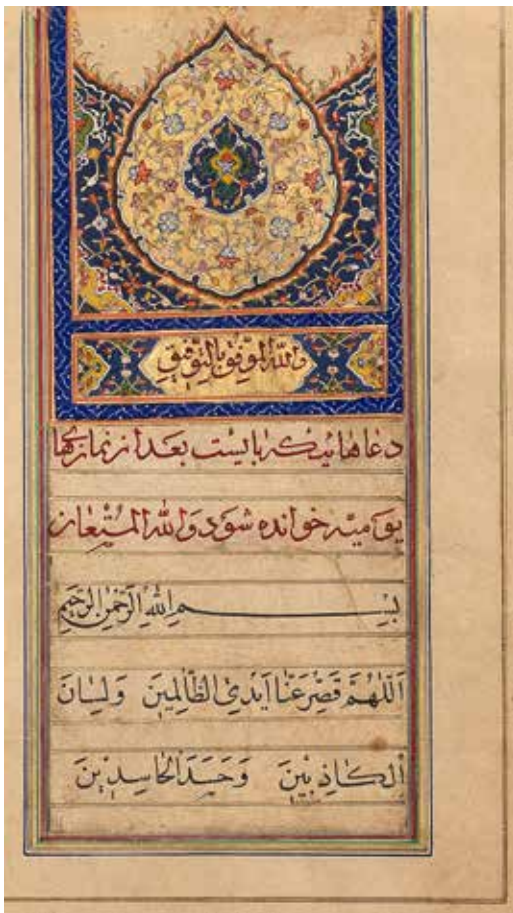 والله الموفق بالتوفيق
دعاهائیکه بایست بعد از نمازهای
یومیه خوانده شود والله المستعان
بِسْمِ اللهِ الرَّحْمٰنِ الرَّحِيمِ
اَللّٰهُمَّ قَصِّرْ عَنَّا اَيْدِيَ الظَّالِمِينَ وَلِسَانَ
الْكَاذِبِينَ وَحَسَدَ الْحَاسِدِينَ